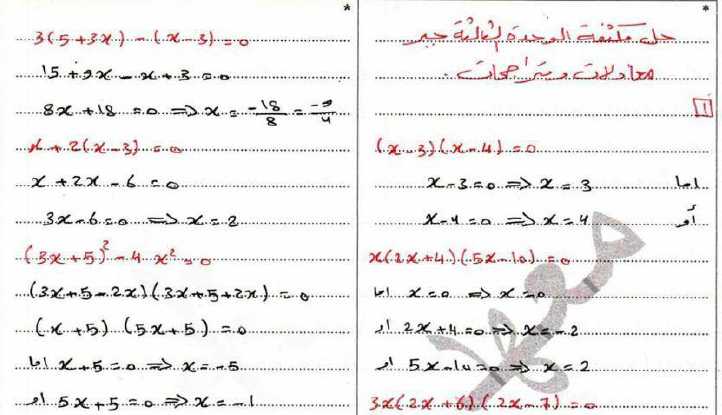 حل مكثفة الوحدة الثالثة جبر
معادلات و متراجحات .
1
(x-3)(x-4)=0
اما x-3=0 ⇒ x=3
أو x-4=0 ⇒ x=4
x(2x+4)(5x-10)=0
اما x=0 ⇒ x=0
او 2x+4=0 ⇒ x=-2
او 5x-10=0 ⇒ x=2
3x(2x+6)(2x-7)=0
*
3(5+3x)-(x-3)=0
15+9x-x+3=0
8x+18=0 ⇒ x=-18/8=-9/4
x+2(x-3)=0
x+2x-6=0
3x-6=0 ⇒ x=2
(3x+5)²-4x²=0
(3x+5-2x)(3x+5+2x)=0
(x+5)(5x+5)=0
اما x+5=0 ⇒ x=-5
او 5x+5=0 ⇒ x=-1